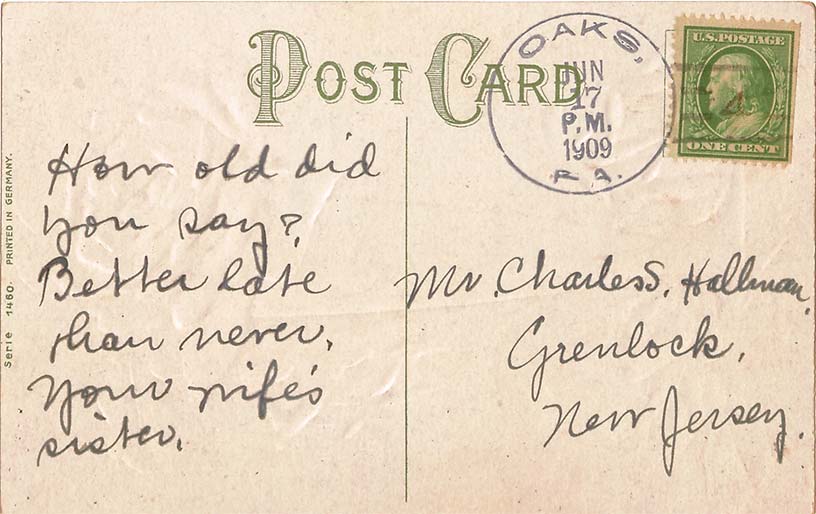 POST CARD
OAKS,
JUN
17
P.M.
1909
PA.
U.S. POSTAGE
ONE CENT
Serie 1460. PRINTED IN GERMANY.
How old did
you say?
Better late
than never.
Your wife's
sister.
Mr. Charles S. Hallman,
Grenlock,
New Jersey.